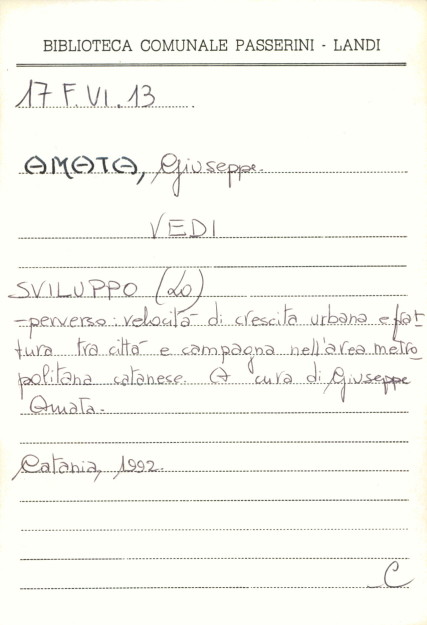 BIBLIOTECA COMUNALE PASSERINI - LANDI
17 F. VI. 13
AMATA, Giuseppe.
VEDI
SVILUPPO (Lo)
-perverso: velocità di crescita urbana e frat-
tura tra città e campagna nell'area metro
politana catanese. A cura di Giuseppe
Amata.
Catania, 1992.
C